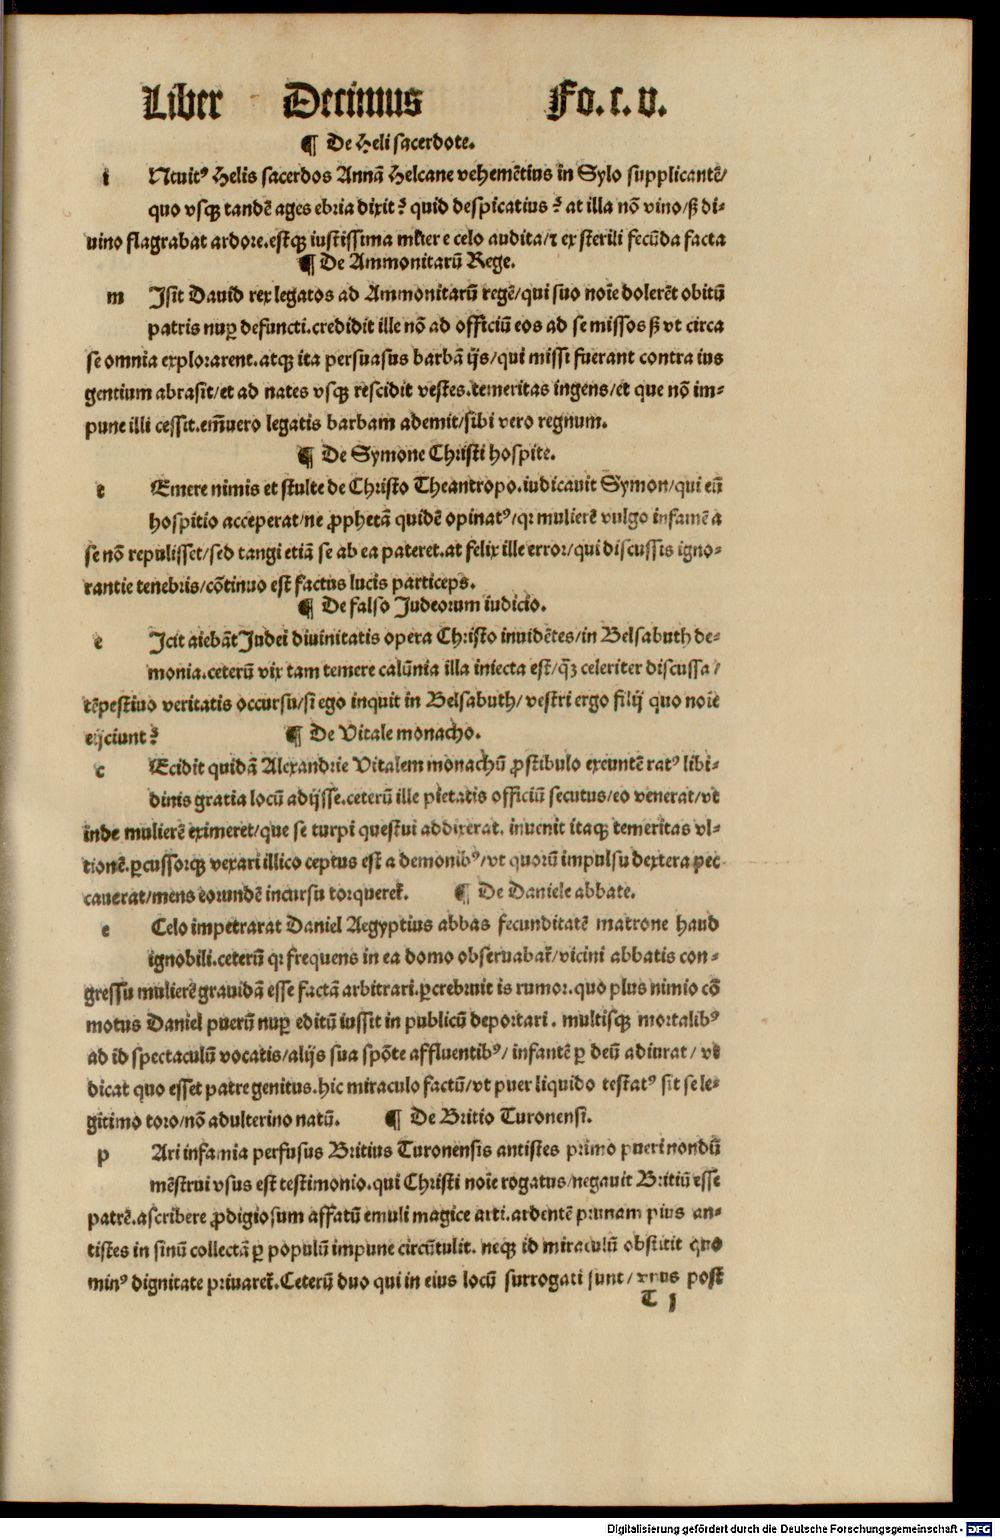 Liber Decimus Fo.c.v.
¶ De Heli sacerdote.
i Ntuitꝰ Helis sacerdos Annã Helcane vehemẽtius in Sylo supplicantẽ/
quo vsqꝫ tandẽ ages ebria dixit? quid despicatius? at illa nõ vino/ꝭ di-
uino flagrabat ardore.estqꝫ iustissima mĩer e celo audita/⁊ ex sterili fecũda facta
¶ De Ammonitarũ Rege.
m Isit Dauid rex legatos ad Ammonitarũ regẽ/qui suo noĩe dolerẽt obitũ
patris nuꝑ defuncti.credidit ille nõ ad officiũ eos ad se missos ꝭ vt circa
se omnia explorarent.atqꝫ ita persuasus barbã ijs/qui missi fuerant contra ius
gentium abrasit/et ad nates vsqꝫ rescidit vestes.temeritas ingens/et que nõ im-
pune illi cessit.em̃uero legatis barbam ademit/sibi vero regnum.
¶ De Symone Christi hospite.
t Emere nimis et stulte de Christo Theantropo.iudicauit Symon/qui eũ
hospitio acceperat/ne ꝓphetã quidẽ opinatꝰ/qꝛ mulierẽ vulgo infamẽ a
se nõ repulisset/sed tangi etiã se ab ea pateret.at felix ille error/qui discussis igno-
rantie tenebris/cõtinuo est factus lucis particeps.
¶ De falso Judeorum iudicio.
e Jcit aiebãt Judei diuinitatis opera Christo inuidẽtes/in Belsabuth de-
monia.ceterũ vix tam temere calũnia illa iniecta est/q̃ꝫ celeriter discussa/
tẽpestiuo veritatis occursu/si ego inquit in Belsabuth/vestri ergo filij quo noĩe
eijciunt? ¶ De Vitale monacho.
c Ecidit quidã Alexandrie Vitalem monachũ ꝓstibulo exeuntẽ ratꝰ libi-
dinis gratia locũ adijsse.ceterũ ille pietatis officiũ secutus/eo venerat/vt
inde mulierẽ eximeret/que se turpi questui addixerat. inuenit itaqꝫ temeritas vl-
tionẽ.ꝑcussorqꝫ vexari illico ceptus est a demonibꝰ/vt quorũ impulsu dextera pec
cauerat/mens eorundẽ incursu torqueret̃. ¶ De Daniele abbate.
e Celo impetrarat Daniel Aegyptius abbas fecunditatẽ matrone haud
ignobili.ceterũ qꝛ frequens in ea domo obseruabat̃/vicini abbatis con-
gressu mulierẽ grauidã esse factã arbitrari.ꝑcrebruit is rumor.quo plus nimio cõ
motus Daniel puerũ nuꝑ editũ iussit in publicũ deportari. multisqꝫ mortalibꝰ
ad id spectaculũ vocatis/alijs sua spõte affluentibꝰ/infantẽ ꝑ deũ adiurat/ vt
dicat quo esset patre genitus.hic miraculo factũ/vt puer liquido testatꝰ sit se le-
gitimo toro/nõ adulterino natũ. ¶ De Britio Turonensi.
p Ari infamia perfusus Britius Turonensis antistes primo pueri nondũ
mẽstrui vsus est testimonio.qui Christi noĩe rogatus/negauit Britiũ esse
patrẽ.ascribere ꝓdigiosum affatũ emuli magice arti.ardentẽ prunam pius an-
tistes in sinũ collectã ꝑ populũ impune circũtulit. neqꝫ id miraculũ obstitit quo
minꝰ dignitate priuaret̃.Ceterũ duo qui in eius locũ surrogati sunt/ vnus post
T j
Digitalisierung gefördert durch die Deutsche Forschungsgemeinschaft - DFG